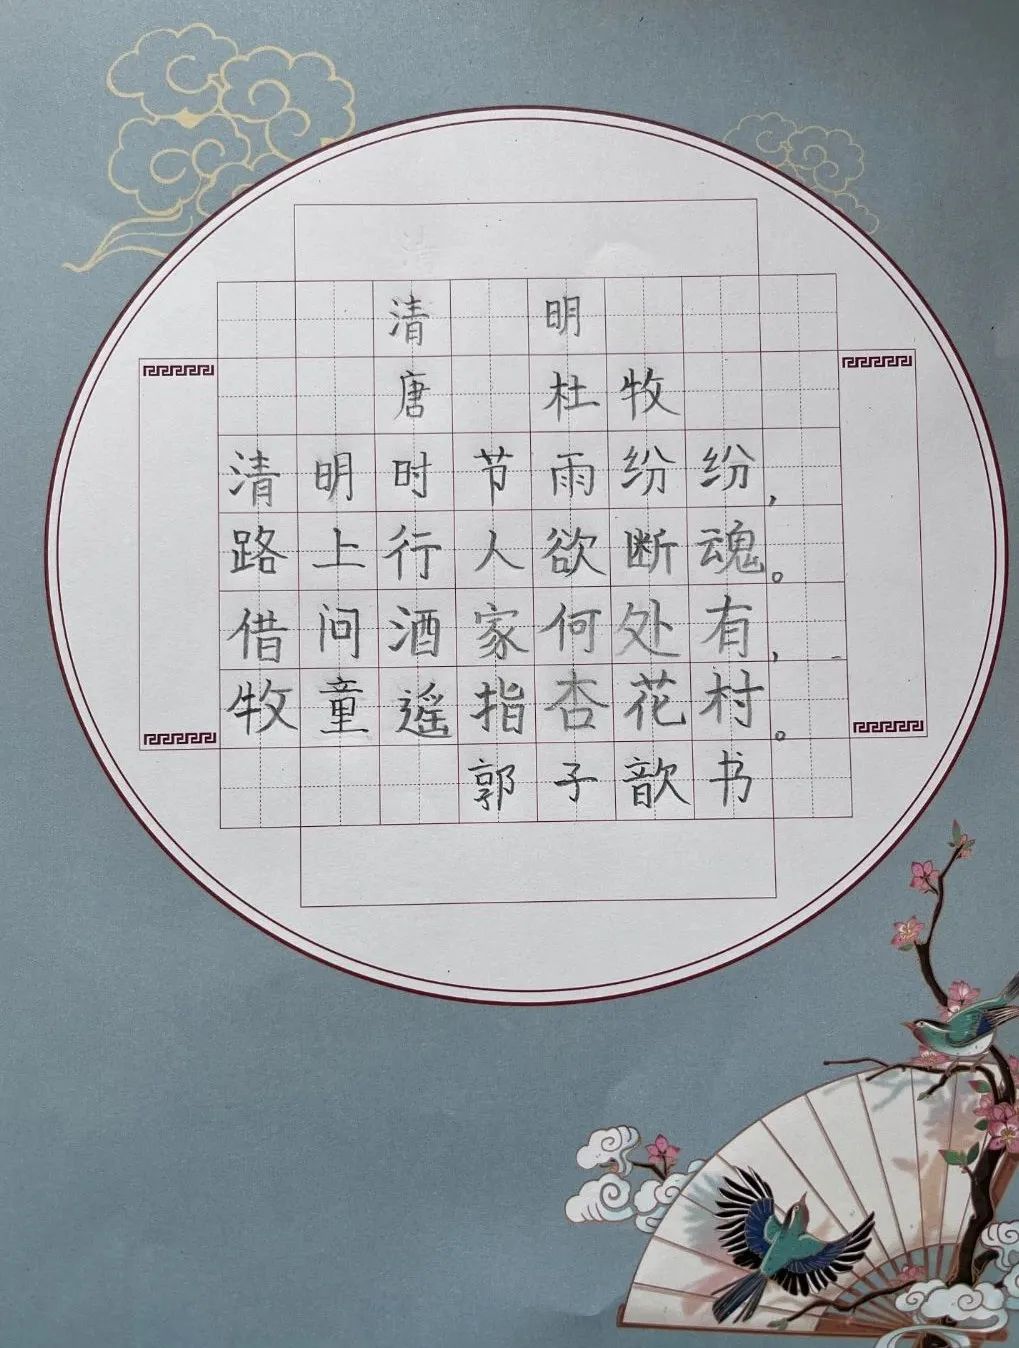 清 明
唐 杜牧
清明时节雨纷纷，
路上行人欲断魂。
借问酒家何处有，
牧童遥指杏花村。
郭子歆书